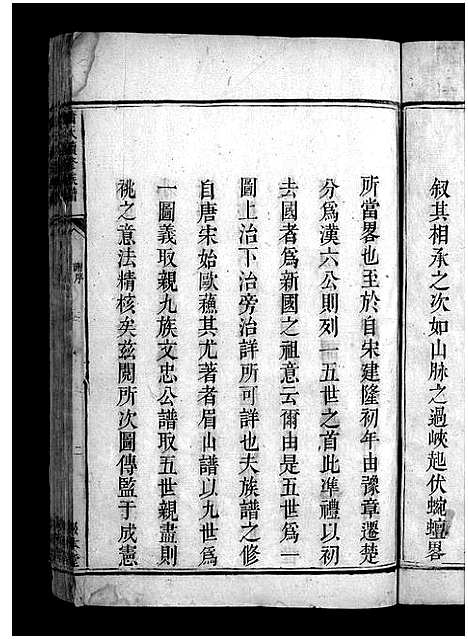 叙其相承之次如山脉之過峽起伏蜿蟺畧
所當畧也至於自宋建隆初年由豫章遷楚
分爲漢六公則列一五世之首此準禮以初
去國者爲新國之祖意云爾由是五世一
圖上治下治旁治詳所可詳也夫族譜之修
自唐宋始歐蘓其尤著者眉山譜以九世爲
一圖義取親九族文忠公譜取五世親盡則
祧之意法精核矣茲閱所次圖傳監于成憲